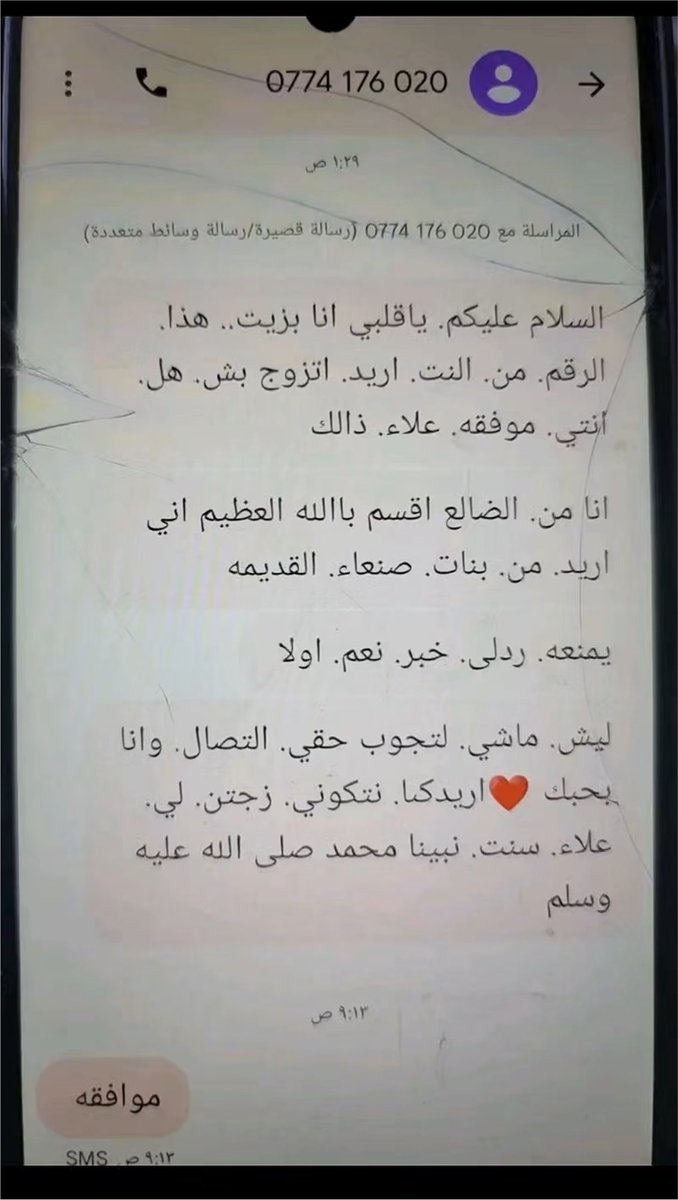 0774 176 020
١:٢٩ ص
المراسلة مع 020 176 0774 (رسالة قصيرة/رسالة وسائط متعددة)
السلام عليكم. ياقلبي انا بزيت.. هذا.
الرقم. من. النت. اريد. اتزوج بش. هل.
انتي. موفقه. علاء. ذالك
انا من. الضالع اقسم باالله العظيم اني
اريد. من. بنات. صنعاء. القديمه
يمنعه. ردلى. خبر. نعم. اولا
ليش. ماشي. لتجوب حقي. التصال. وانا
بحبك ❤️اريدكا. نتكوني. زجتن. لي.
علاء. سنت. نبينا محمد صلى الله عليه
وسلم
٩:١٣ ص
موافقه
٩:١٣ ص. SMS